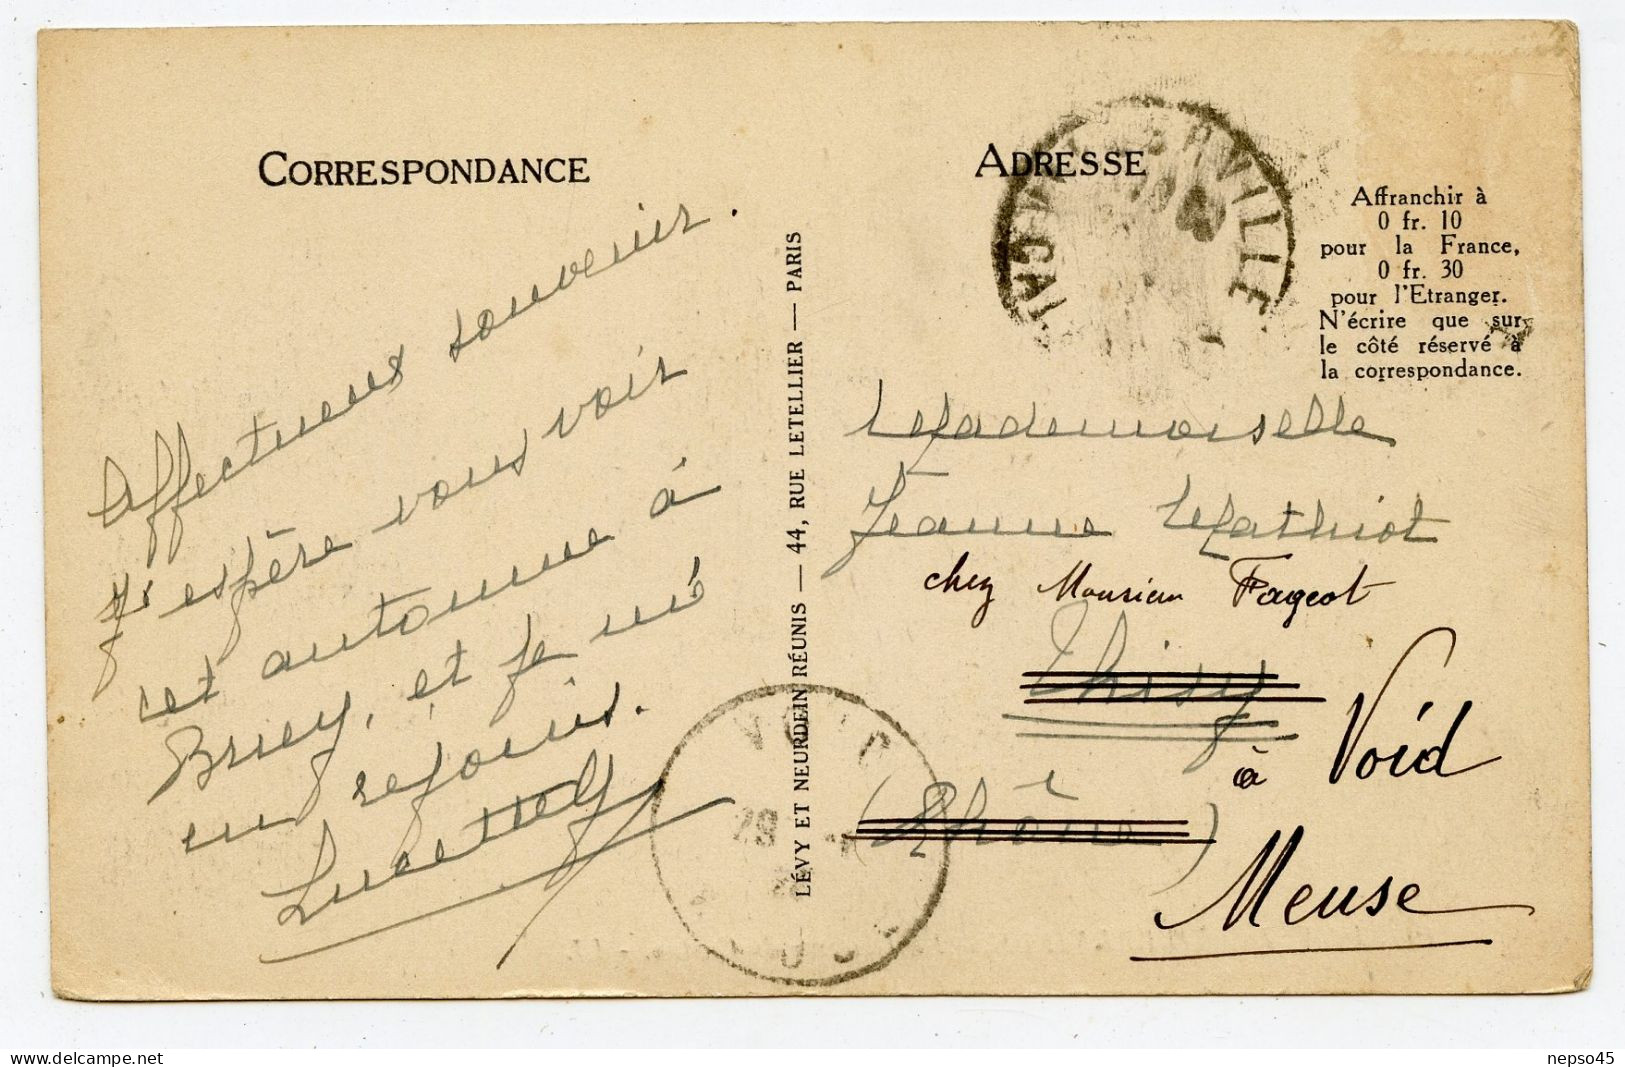 CORRESPONDANCE
Affectueux souvenir.
J'espère vous voir
cet automne à
Briey, et je m'é
en réjouis.
LÉVY ET NEURDEIN RÉUNIS — 44, RUE LETELLIER — PARIS
ADRESSE
VILLE
CAL
Affranchir à
0 fr. 10
pour la France,
0 fr. 30
pour l'Etranger.
N'écrire que sur
le côté réservé à
la correspondance.
Mademoiselle
Jeanne Mathiot
chez Monsieur Fageot
Thisy
à Void
(Rhône)
Meuse
VOID
nepso45